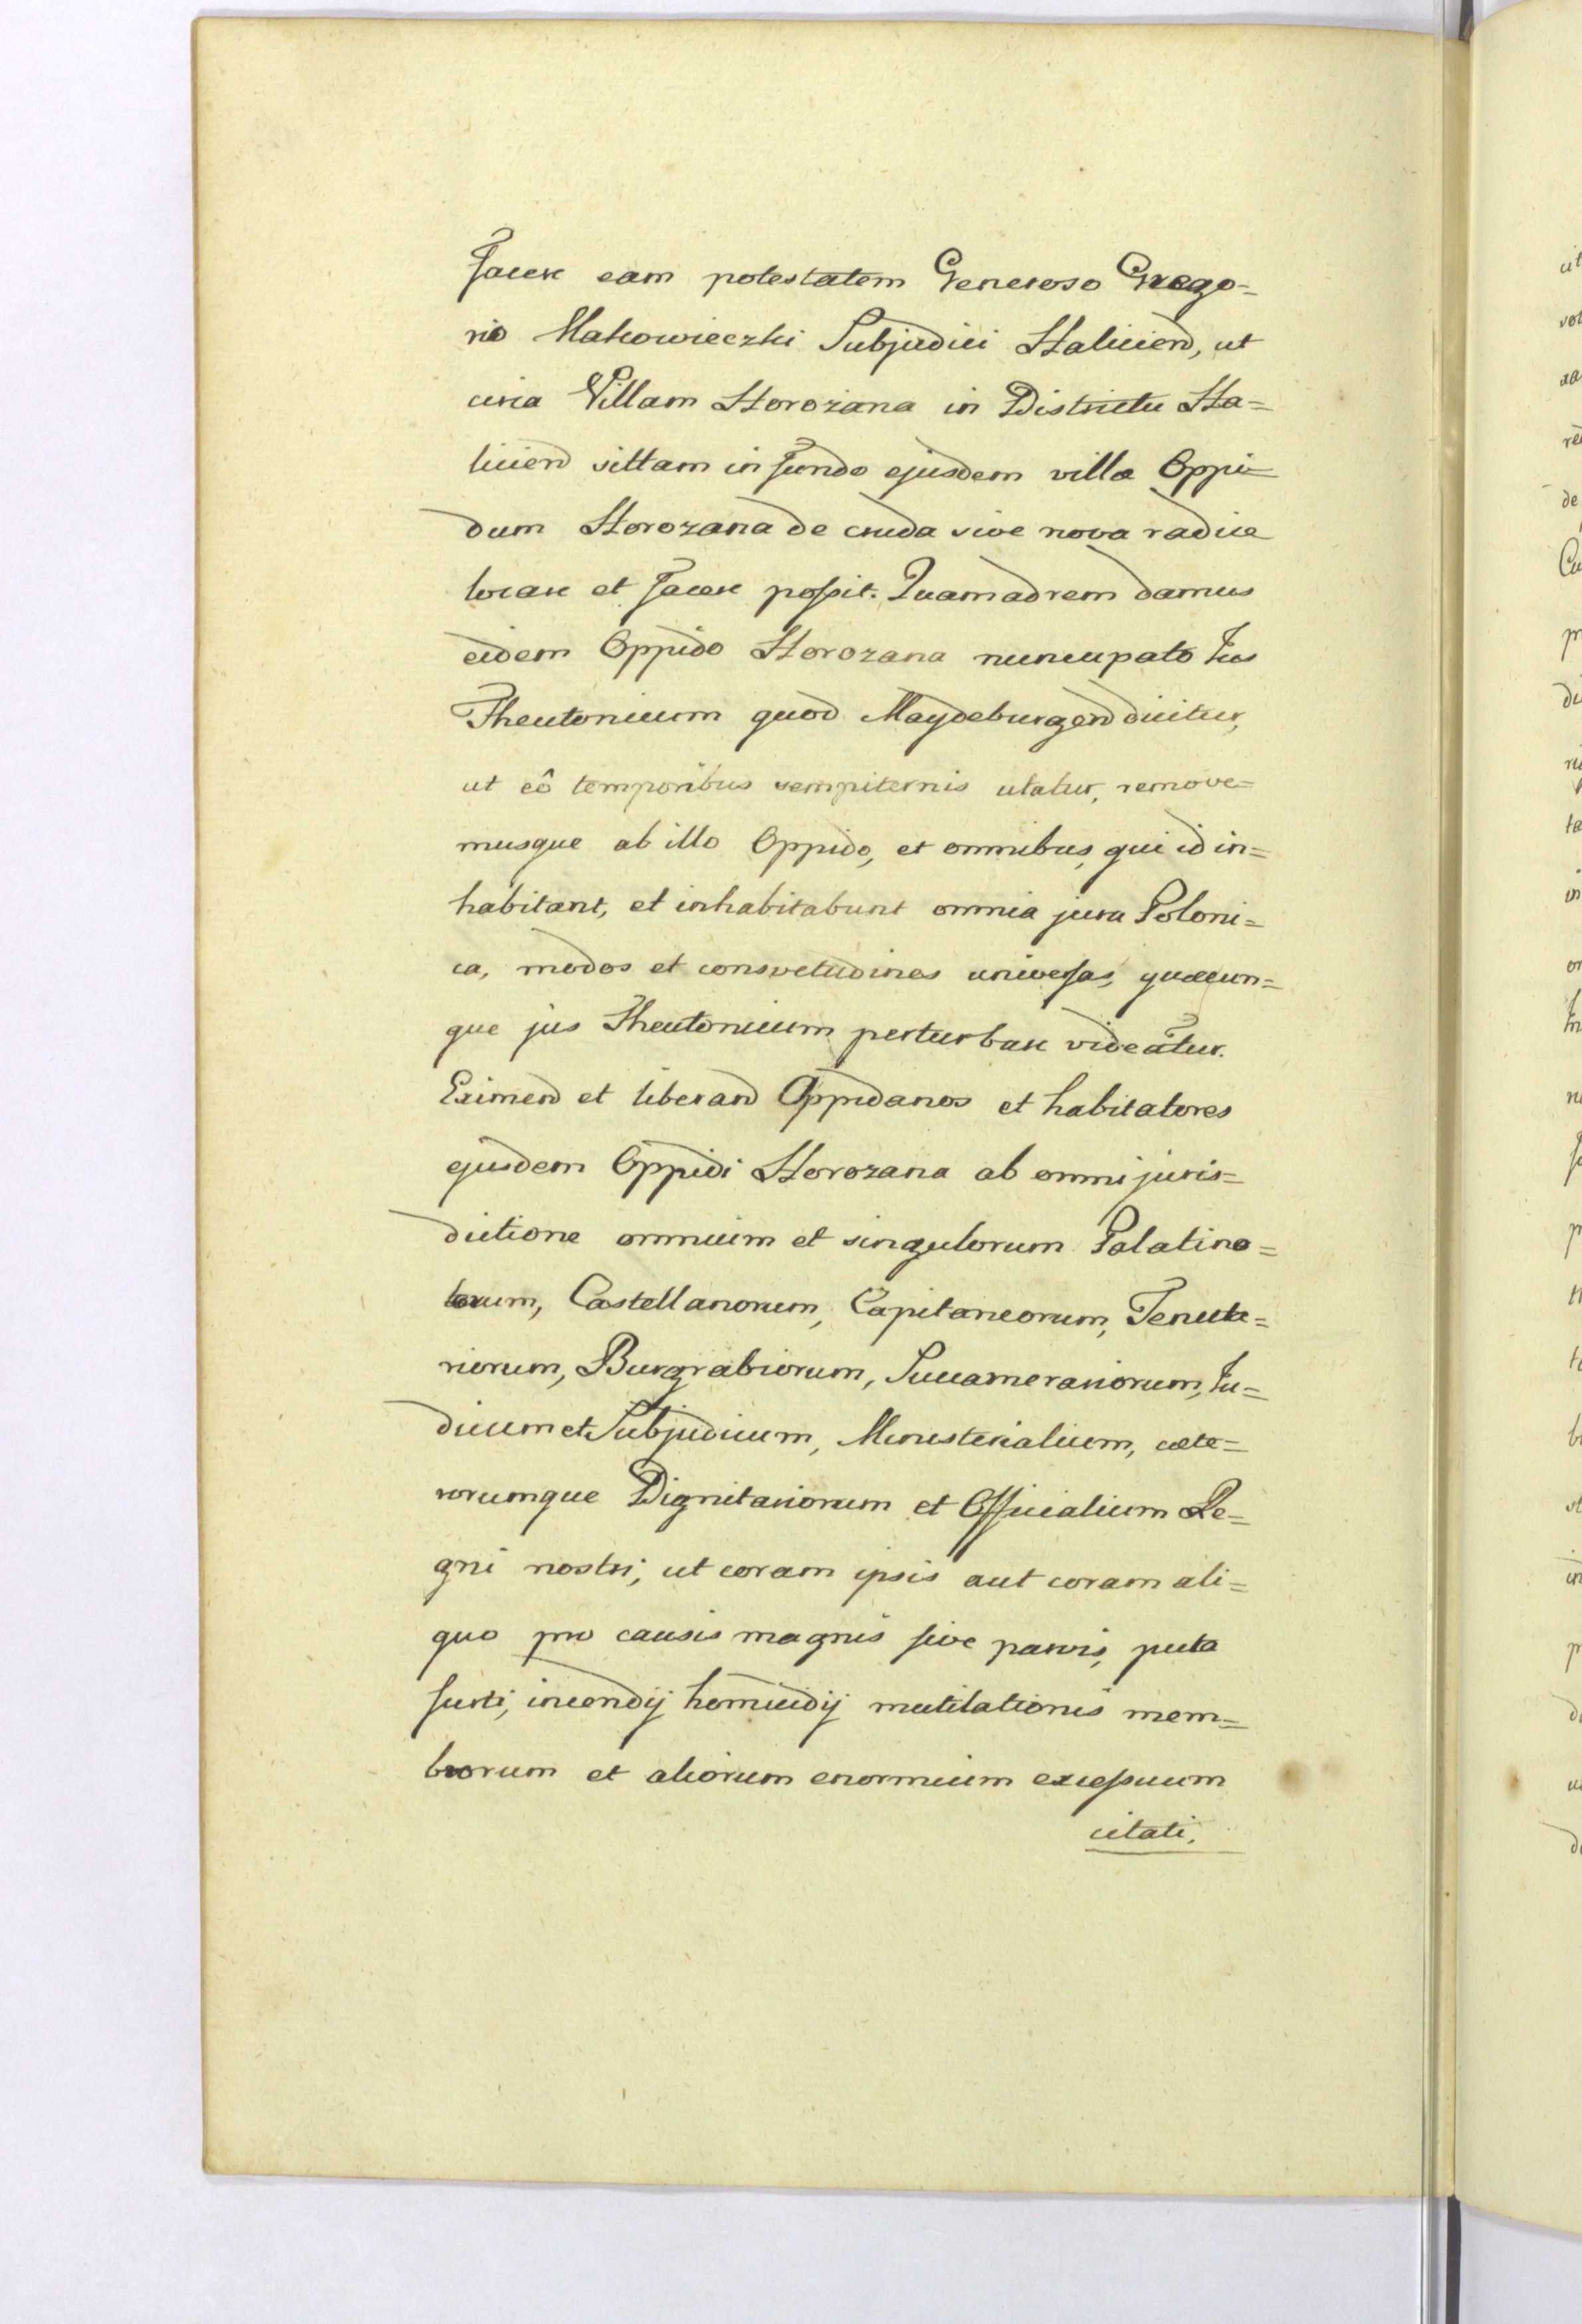 Facere eam potestatem Generoso Grego=
rio Makowieczki Subjudici Haliciend, ut
circa Villam Horozana in Districtu Ha=
liciend sittam in fundo ejusdem villæ Oppi=
dum Horozana de cruda sive nova radice
locare et facere possit. Quamadrem damus
eidem Oppido Horozana nuncupato Jus
Theutonicum quod Maydeburgend dicitur,
ut eô temporibus sempiternis utatur, remove=
musque ab illo Oppido, et omnibus, qui id in=
habitant, et inhabitabunt omnia jura Poloni=
ca, modos et consvetudines universas, quæcun=
que jus Theutonicum perturbare videatur.
Eximend et liberand Oppidanos et habitatores
ejusdem Oppidi Horozana ab omni juris=
dictione omnium et singulorum Palatino=
rum, Castellanorum, Capitaneorum, Tenuta=
riorum, Burgrabiorum, Succamerariorum, Ju=
dicum et Subjudicum, Ministerialium, cæte=
rorumque Dignitariorum et Officialium Re=
gni nostri, ut coram ipsis aut coram ali=
quo pro causis magnis sive parvis, puta
furti, incendij homicidij mutilationis mem=
brorum et aliorum enormium excessuum
citati,